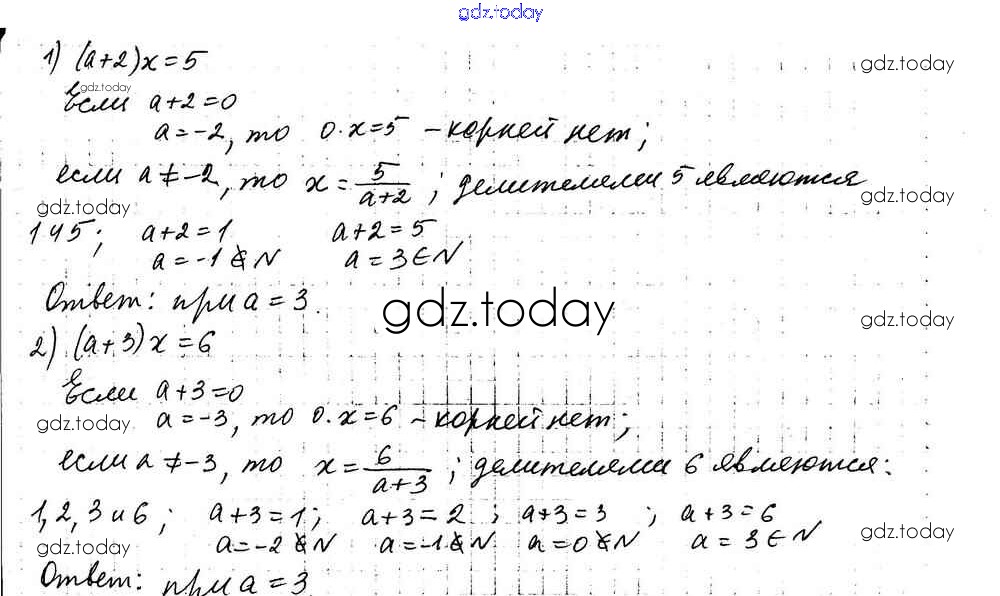 gdz.today
1) (a+2)x=5 gdz.today
gdz.today
Если a+2=0
a=-2, то 0·x=5 -корней нет;
если a≠-2, то x=5/(a+2); делителями 5 являются
gdz.today gdz.today
1 и 5; a+2=1 a+2=5
a=-1∉N a=3∈N
Ответ: при a=3.
gdz.today gdz.today
2) (a+3)x=6
Если a+3=0
a=-3, то 0·x=6 -корней нет;
gdz.today gdz.today
если a≠-3, то x=6/(a+3); делителями 6 являются:
1, 2, 3 и 6; a+3=1; a+3=2; a+3=3; a+3=6
gdz.today a=-2∉N a=-1∉N a=0∉N a=3∈N gdz.today
Ответ: при a=3